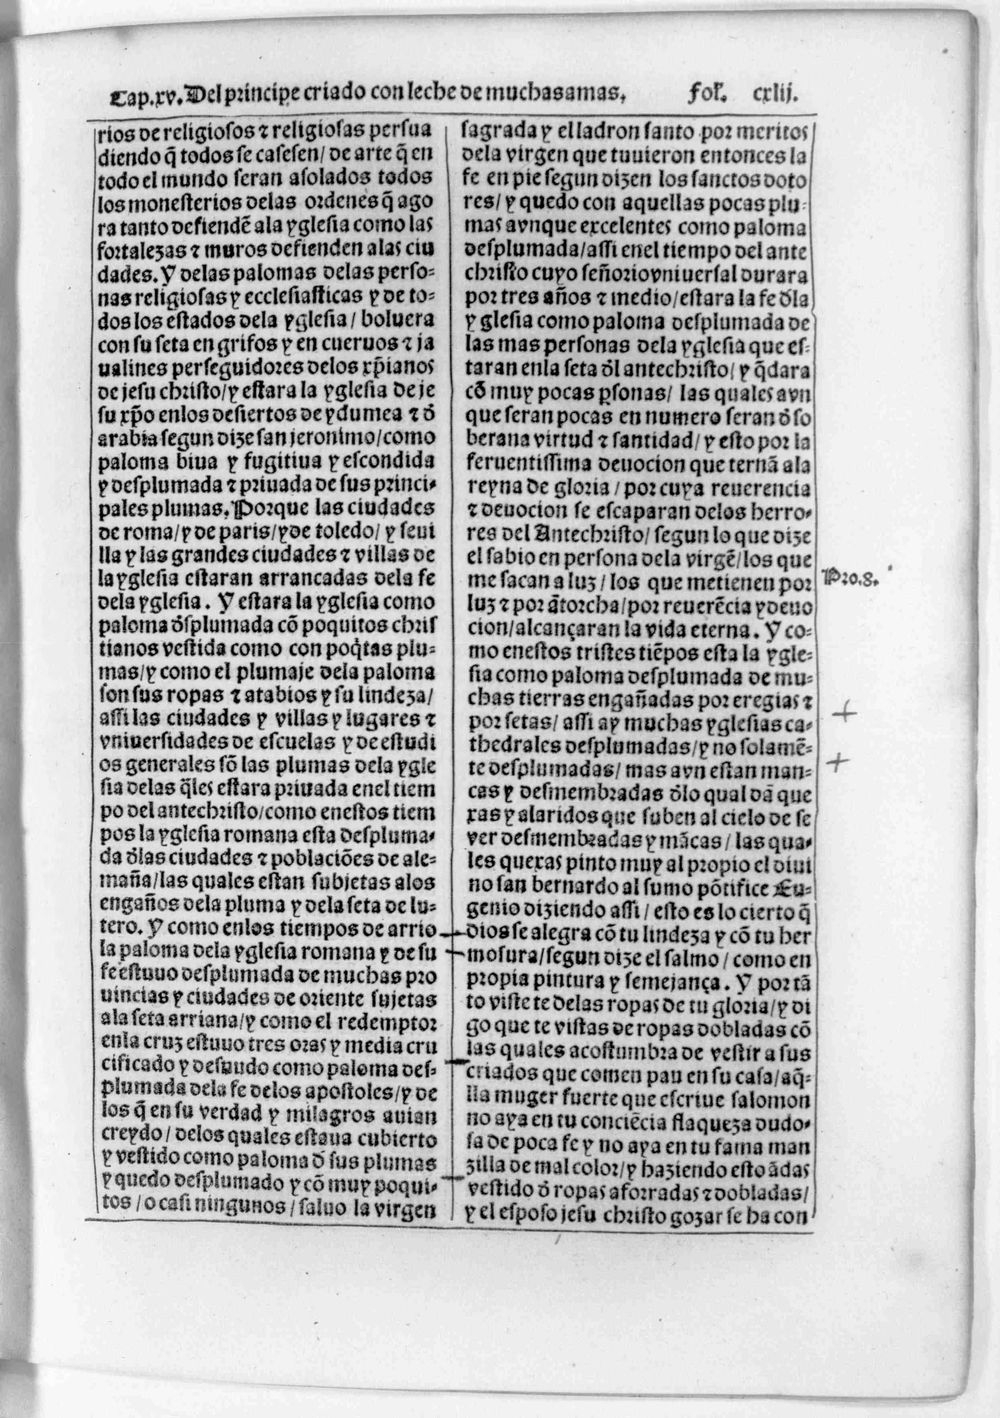 Cap.xv. Del principe criado con leche de muchas amas. fol. cxlij.
rios de religiosos ⁊ religiosas persua
diendo q̃ todos se casesen/ de arte q̃ en
todo el mundo seran asolados todos
los monesterios delas ordenes q̃ ago
ra tanto defiendẽ ala yglesia como las
fortalezas ⁊ muros defienden alas ciu
dades. Y delas palomas delas perso-
nas religiosas y ecclesiasticas y de to-
dos los estados dela yglesia/ boluera
con su seta en grifos y en cueruos ⁊ ja
ualines perseguidores delos xp̃ianos
de jesu christo/ y estara la yglesia de je
su xp̃o enlos desiertos de ydumea ⁊ d̃
arabia segun dize san jeronimo/ como
paloma biua y fugitiua y escondida
y desplumada ⁊ priuada de sus princi-
pales plumas. Porque las ciudades
de roma/ y de paris/ y de toledo/ y seui
lla y las grandes ciudades ⁊ villas de
la yglesia estaran arrancadas dela fe
dela yglesia. Y estara la yglesia como
paloma d̃splumada cõ poquitos chris
tianos vestida como con poq̃tas plu-
mas/ y como el plumaje dela paloma
son sus ropas ⁊ atabios y su lindeza/
assi las ciudades y villas y lugares ⁊
vniuersidades de escuelas y de estudi
os generales sõ las plumas dela ygle
sia delas q̃les estara priuada enel tiem
po del antechristo/ como enestos tiem
pos la yglesia romana esta despluma-
da d̃las ciudades ⁊ poblaciões de ale-
maña/ las quales estan subjetas alos
engaños dela pluma y dela seta de lu-
tero. Y como enlos tiempos de arrio
la paloma dela yglesia romana y de su
fe estuuo desplumada de muchas pro
uincias y ciudades de oriente sujetas
ala seta arriana/ y como el redemptor
enla cruz estuuo tres oras y media cru
cificado y desnudo como paloma des-
plumada dela fe delos apostoles/ y de
los q̃ en su verdad y milagros auian
creydo/ delos quales estaua cubierto
y vestido como paloma d̃ sus plumas
y quedo desplumado y cõ muy poqui-
tos/ o casi ningunos/ saluo la virgen
sagrada y el ladron santo por meritos
dela virgen que tuuieron entonces la
fe en pie segun dizen los sanctos doto
res/ y quedo con aquellas pocas plu-
mas avnque excelentes como paloma
desplumada/ assi enel tiempo del ante
christo cuyo señorio vniuersal durara
por tres años ⁊ medio/ estara la fe d̃la
yglesia como paloma desplumada de
las mas personas dela yglesia que es-
taran enla seta d̃l antechristo/ y q̃dara
cõ muy pocas p̱sonas/ las quales avn
que seran pocas en numero seran d̃ so
berana virtud ⁊ santidad/ y esto por la
feruentissima deuocion que ternã ala
reyna de gloria/ por cuya reuerencia
⁊ deuocion se escaparan delos herro-
res del Antechristo/ segun lo que dize
el sabio en persona dela virgẽ/ los que
me sacan a luz/ los que me tienen por
luz ⁊ por ãtorcha/ por reuerẽcia y deuo
cion/ alcançaran la vida eterna. Y co-
mo enestos tristes tiẽpos esta la ygle-
sia como paloma desplumada de mu-
chas tierras engañadas por eregias ⁊
por setas/ assi ay muchas yglesias ca-
thedrales desplumadas/ y no solamẽ-
te desplumadas/ mas avn estan man-
cas y desmembradas d̃lo qual dã que
xas y alaridos que suben al cielo de se
ver desmembradas y mãcas/ las qua-
les quexas pinto muy al propio el diui
no san bernardo al sumo põtifice Eu-
genio diziendo assi/ esto es lo cierto q̃
dios se alegra cõ tu lindeza y cõ tu her
mosura/ segun dize el salmo/ como en
propia pintura y semejança. Y por tã
to viste te delas ropas de tu gloria/ y di
go que te vistas de ropas dobladas cõ
las quales acostumbra de vestir a sus
criados que comen pan en su casa/ aq̃-
lla muger fuerte que escriue salomon
no aya en tu conciẽcia flaqueza dudo-
sa de poca fe y no aya en tu fama man
zilla de mal color/ y haziendo esto ãdas
vestido d̃ ropas aforradas ⁊ dobladas/
y el esposo jesu christo gozar se ha con
Pro.8.